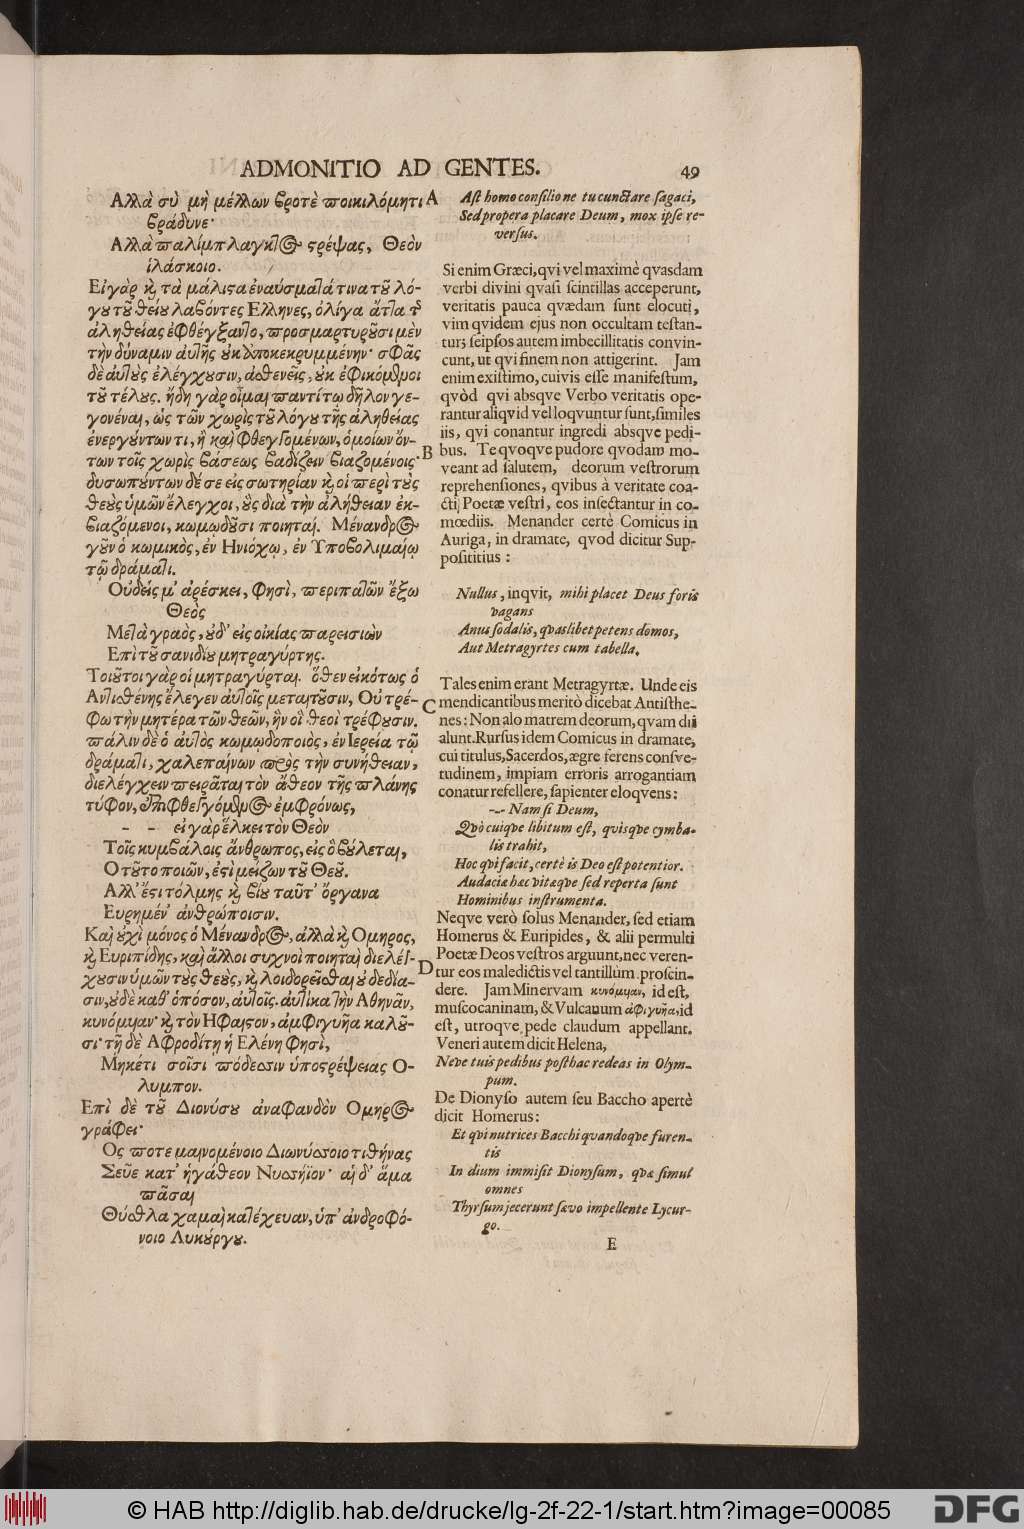 ADMONITIO AD GENTES. 49
Ἀλλὰ σὺ μὴ μέλλων βροτὲ ποικιλόμητι
βράδυνε·
Ἀλλὰ παλίμπλαγκτος στρέψας, Θεὸν
ἱλάσκοιο.
Εἰ γὰρ καὶ τὰ μάλιστα ἐναύσματά τινα τοῦ λό-
γου τοῦ θείου λαβόντες Ἕλληνες, ὀλίγα ἄττα τῆς
ἀληθείας ἐφθέγξαντο, προσμαρτυροῦσι μὲν
τὴν δύναμιν αὐτῆς οὐκ ἀποκεκρυμμένην· σφᾶς
δὲ αὐτοὺς ἐλέγχουσιν, ἀσθενεῖς, οὐκ ἐφικόμενοι
τοῦ τέλους. ἤδη γὰρ οἶμαι παντί τῳ δῆλον γε-
γονέναι, ὡς τῶν χωρὶς τοῦ λόγου τῆς ἀληθείας
ἐνεργούντων τι, ἢ καὶ φθεγγομένων, ὁμοίων ὄν-
των τοῖς χωρὶς βάσεως βαδίζειν βιαζομένοις·
δυσωπούντων δέ σε εἰς σωτηρίαν καὶ οἱ περὶ τοὺς
θεοὺς ὑμῶν ἔλεγχοι, οὓς διὰ τὴν ἀλήθειαν ἐκ-
βιαζόμενοι, κωμῳδοῦσι ποιηταί. Μένανδρος
γοῦν ὁ κωμικὸς, ἐν Ἡνιόχῳ, ἐν Ὑποβολιμαίῳ
τῷ δράματι.
Οὐδείς μ' ἀρέσκει, φησὶ, περιπατῶν ἔξω
Θεὸς
Μετὰ γραὸς, οὐδ' εἰς οἰκίας παρεισιὼν
Ἐπὶ τοῦ σανιδίου μητραγύρτης.
Τοιοῦτοι γὰρ οἱ μητραγύρται. ὅθεν εἰκότως ὁ
Ἀντισθένης ἔλεγεν αὐτοῖς μεταιτοῦσιν, Οὐ τρέ-
φω τὴν μητέρα τῶν θεῶν, ἣν οἱ θεοὶ τρέφουσιν.
πάλιν δὲ ὁ αὐτὸς κωμῳδοποιὸς, ἐν Ἱερείᾳ τῷ
δράματι, χαλεπαίνων πρὸς τὴν συνήθειαν,
διελέγχειν πειρᾶται τὸν ἄθεον τῆς πλάνης
τύφον, ἐπιφθεγγόμενος ἐμφρόνως,
- - εἰ γὰρ ἕλκει τὸν Θεὸν
Τοῖς κυμβάλοις ἄνθρωπος, εἰς ὃ βούλεται,
Ὁ τοῦτο ποιῶν, ἐστὶ μείζων τοῦ Θεοῦ.
Ἀλλ' ἔστι τόλμης καὶ βίου ταῦτ' ὄργανα
Εὑρημέν' ἀνθρώποισιν.
Καὶ οὐχὶ μόνος ὁ Μένανδρος, ἀλλὰ καὶ Ὅμηρος,
καὶ Εὐριπίδης, καὶ ἄλλοι συχνοὶ ποιηταὶ διελέγ-
χουσιν ὑμῶν τοὺς θεοὺς, καὶ λοιδορεῖσθαι οὐ δεδία-
σιν, οὐδὲ καθ' ὁπόσον, αὐτοῖς. αὐτίκα τὴν Ἀθηνᾶν,
κυνόμυιαν· καὶ τὸν Ἥφαιστον, ἀμφιγυῆα καλοῦ-
σι· τῇ δὲ Ἀφροδίτῃ ἡ Ἑλένη φησὶ,
Μηκέτι σοῖσι πόδεσσιν ὑποστρέψειας Ὄ-
λυμπον.
Ἐπὶ δὲ τοῦ Διονύσου ἀναφανδὸν Ὅμηρος
γράφει·
Ὅς ποτε μαινομένοιο Διωνύσσοιο τιθήνας
Σεῦε κατ' ἠγάθεον Νυσσήϊον· αἱ δ' ἅμα
πᾶσαι
Θύσθλα χαμαὶ κατέχευαν, ὑπ' ἀνδροφό-
νοιο Λυκούργου.
A
B
C
D
Ast homo consilio ne tu cunctare sagaci,
Sed propera placare Deum, mox ipse re-
versus.
Si enim Græci, qvi vel maximè qvasdam
verbi divini qvasi scintillas acceperunt,
veritatis pauca qvædam sunt elocuti,
vim qvidem ejus non occultam testan-
tur; seipsos autem imbecillitatis convin-
cunt, ut qvi finem non attigerint. Jam
enim existimo, cuivis esse manifestum,
qvòd qvi absqve Verbo veritatis ope-
rantur aliqvid vel loqvuntur sunt, similes
iis, qvi conantur ingredi absqve pedi-
bus. Te qvoqve pudore qvodam mo-
veant ad salutem, deorum vestrorum
reprehensiones, qvibus à veritate coa-
cti, Poetæ vestri, eos insectantur in co-
mœdiis. Menander certè Comicus in
Auriga, in dramate, qvod dicitur Sup-
posititius :
Nullus, inqvit, mihi placet Deus foris
vagans
Anus sodalis, qvaslibet petens domos,
Aut Metragyrtes cum tabella.
Tales enim erant Metragyrtæ. Unde eis
mendicantibus meritò dicebat Antisthe-
nes: Non alo matrem deorum, qvam dii
alunt. Rursus idem Comicus in dramate,
cui titulus, Sacerdos, ægre ferens consve-
tudinem, impiam erroris arrogantiam
conatur refellere, sapienter eloqvens:
-.- Nam si Deum,
Qvò cuiqve libitum est, qvisqve cymba-
lis trahit,
Hoc qvi facit, certè is Deo est potentior.
Audaciæ hæc vitæqve sed reperta sunt
Hominibus instrumenta.
Neqve verò solus Menander, sed etiam
Homerus & Euripides, & alii permulti
Poetæ Deos vestros arguunt, nec veren-
tur eos maledictis vel tantillùm proscin-
dere. Jam Minervam κυνόμυιαν, id est,
muscocaninam, & Vulcanum ἀφιγυῆα, id
est, utroqve pede claudum appellant.
Veneri autem dicit Helena,
Neve tuis pedibus posthac redeas in Olym-
pum.
De Dionyso autem seu Baccho apertè
dicit Homerus:
Et qvi nutrices Bacchi qvandoqve furen-
tis
In dium immisit Dionysum, qvæ simul
omnes
Thyrsum jecerunt sævo impellente Lycur-
go.
E
© HAB http://diglib.hab.de/drucke/lg-2f-22-1/start.htm?image=00085
DFG